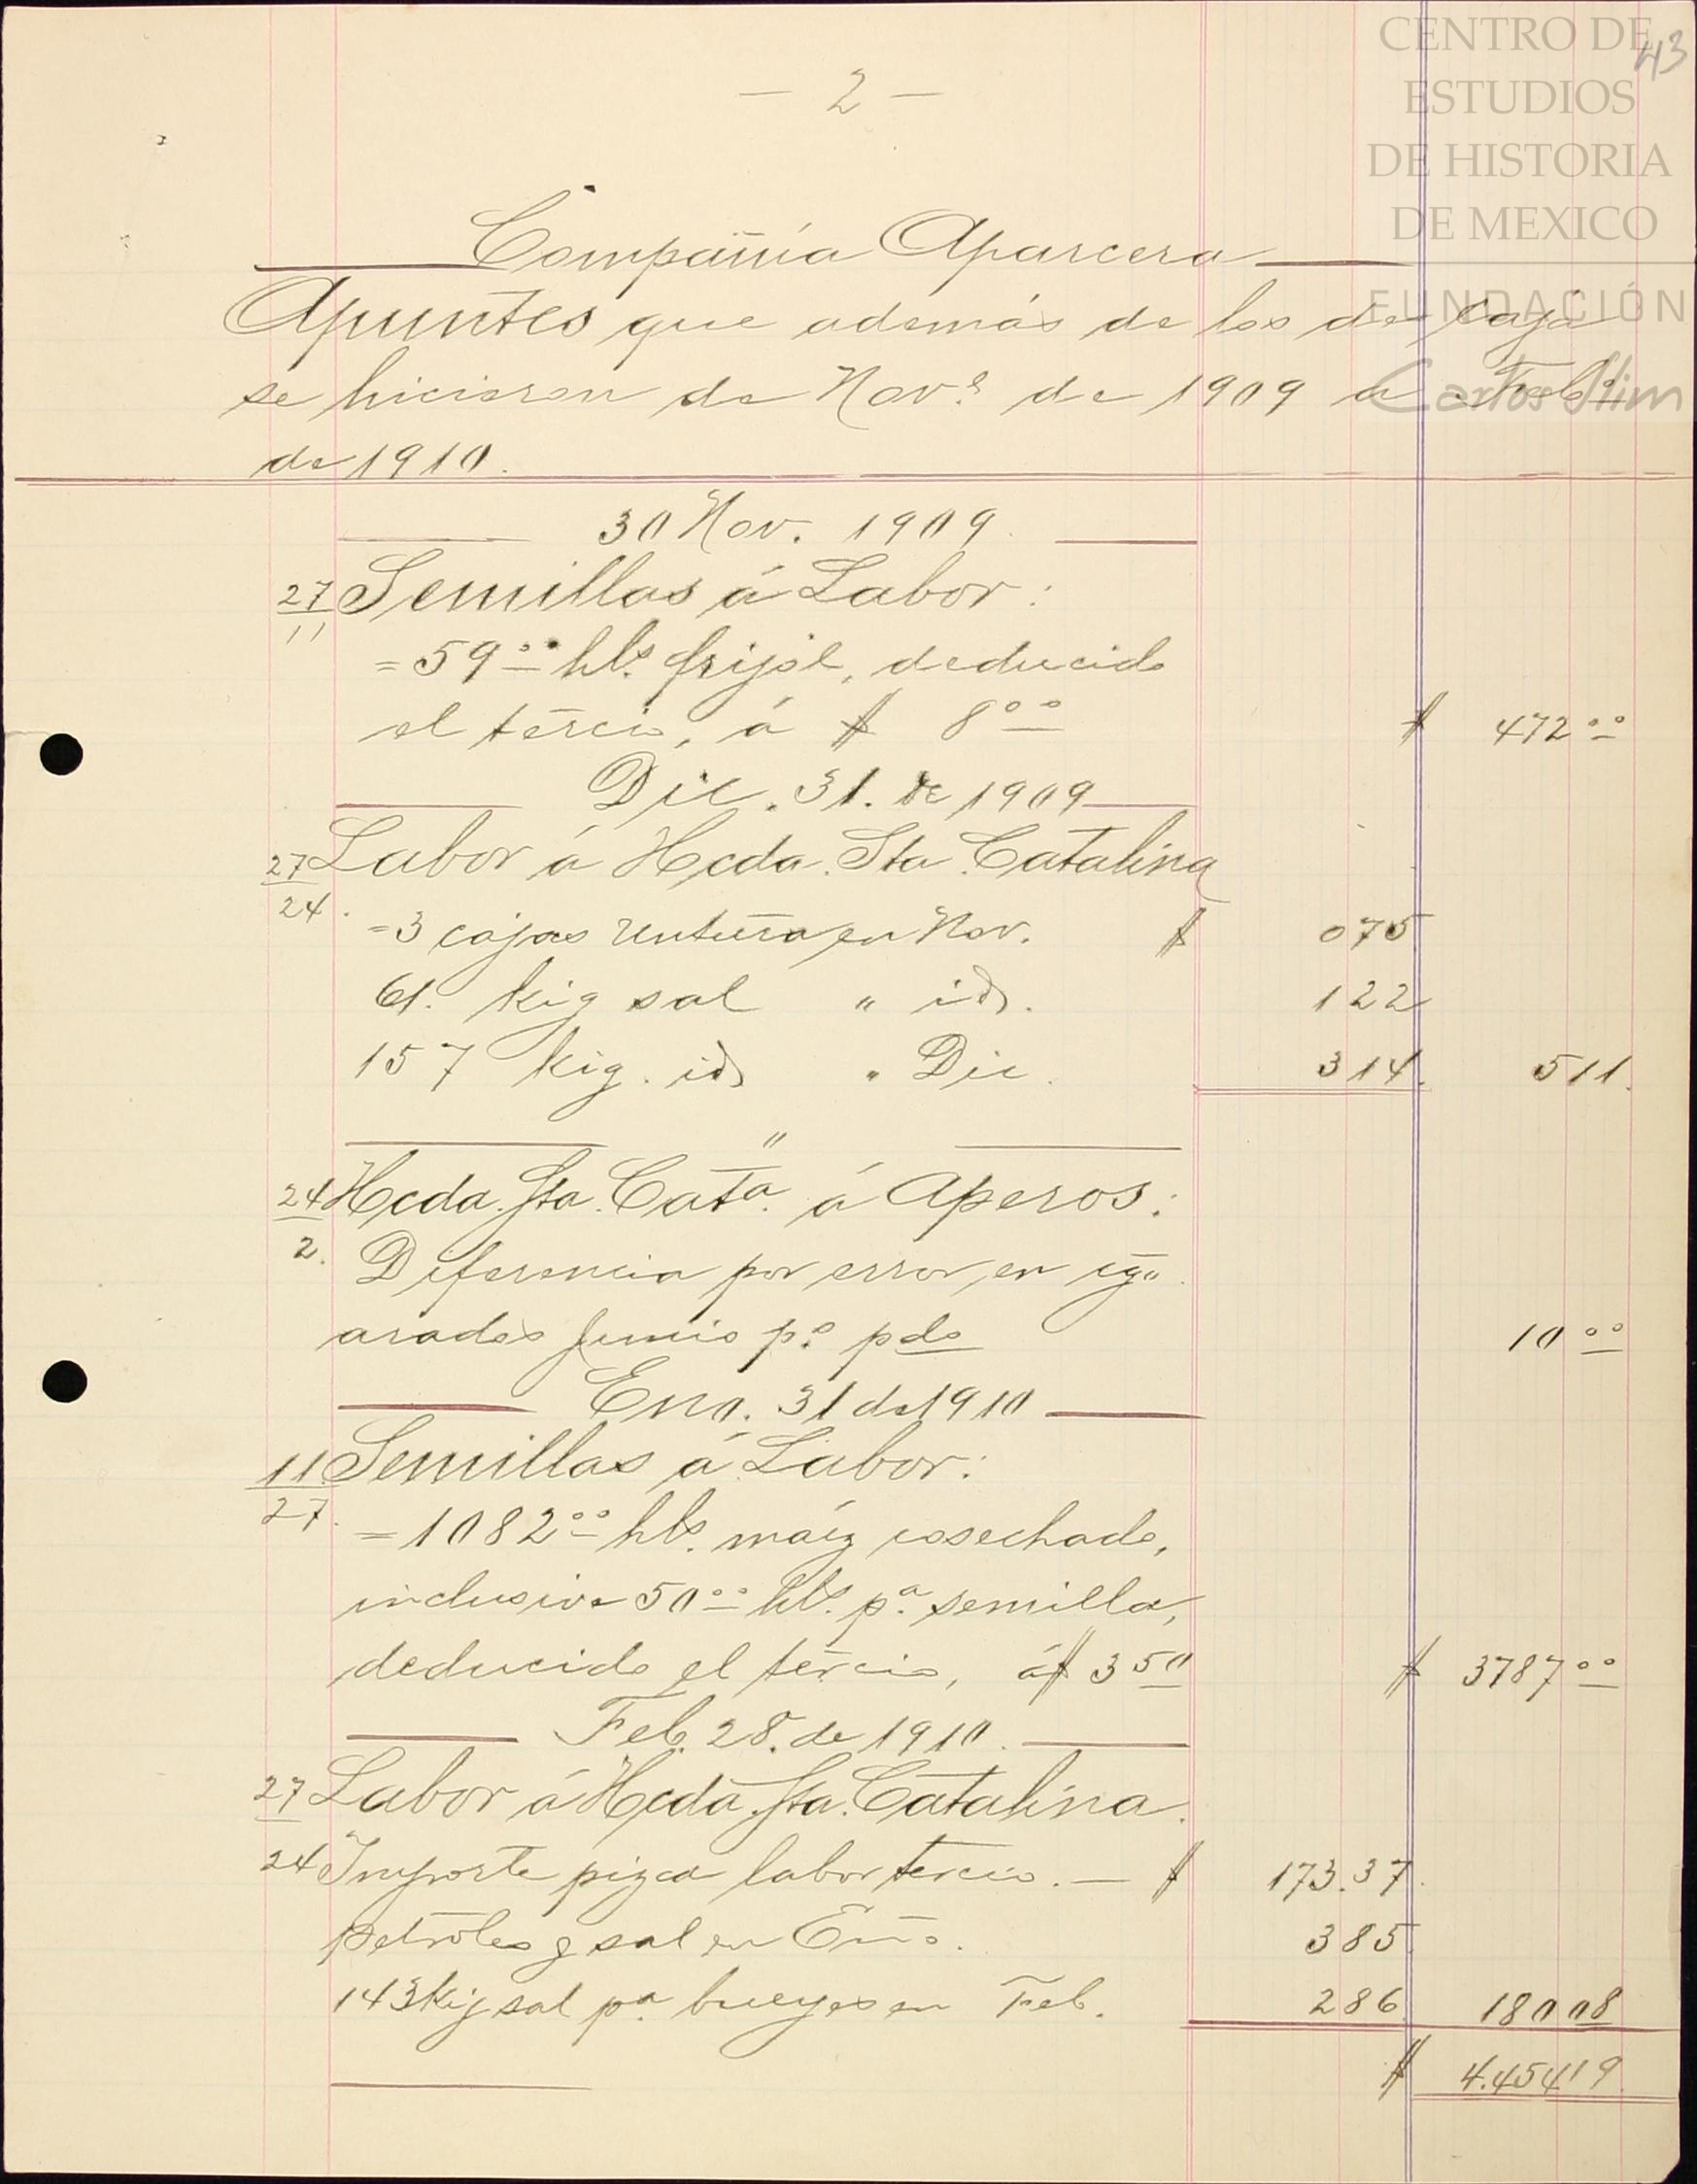 CENTRO DE
ESTUDIOS
DE HISTORIA
DE MEXICO
FUNDACIÓN
Carlos Slim
43
— 2 —
Compañía Aparcera
Apuntes que además de los de Caja
se hicieron de Nov.e de 1909 a Feb.o
de 1910.
30 Nov. 1909.
27 Semillas á Labor:
11
= 59 00 hls. frijol, deducido
el tercio, á $ 8 00 $ 472 00
Dic. 31. de 1909
27 Labor á Hcda. Sta. Catalina
24
= 3 cajas untura en Nov. $ 075
61. kig sal " id. 122
157 kig. id " Dic. 314. 511.
"
24 Hcda. Sta. Cata. á Aperos:
2.
Diferencia por error en
arados Junio p.o pdo 10 00
Eno. 31 de 1910
11 Semillas á Labor:
27.
= 1082 00 hls. maíz cosechado,
inclusive 50 00 hls. p.a semilla,
deducido el tercio, á $ 3 50 $ 3787 00
Feb. 28. de 1910.
27 Labor á Hcda. Sta. Catalina.
24 Importe pizca labor tercio. — $ 173.37.
petróleo y sal en Eno. 385
143 kig sal p.a bueyes en Feb. 286 180 08
$ 4.454 19